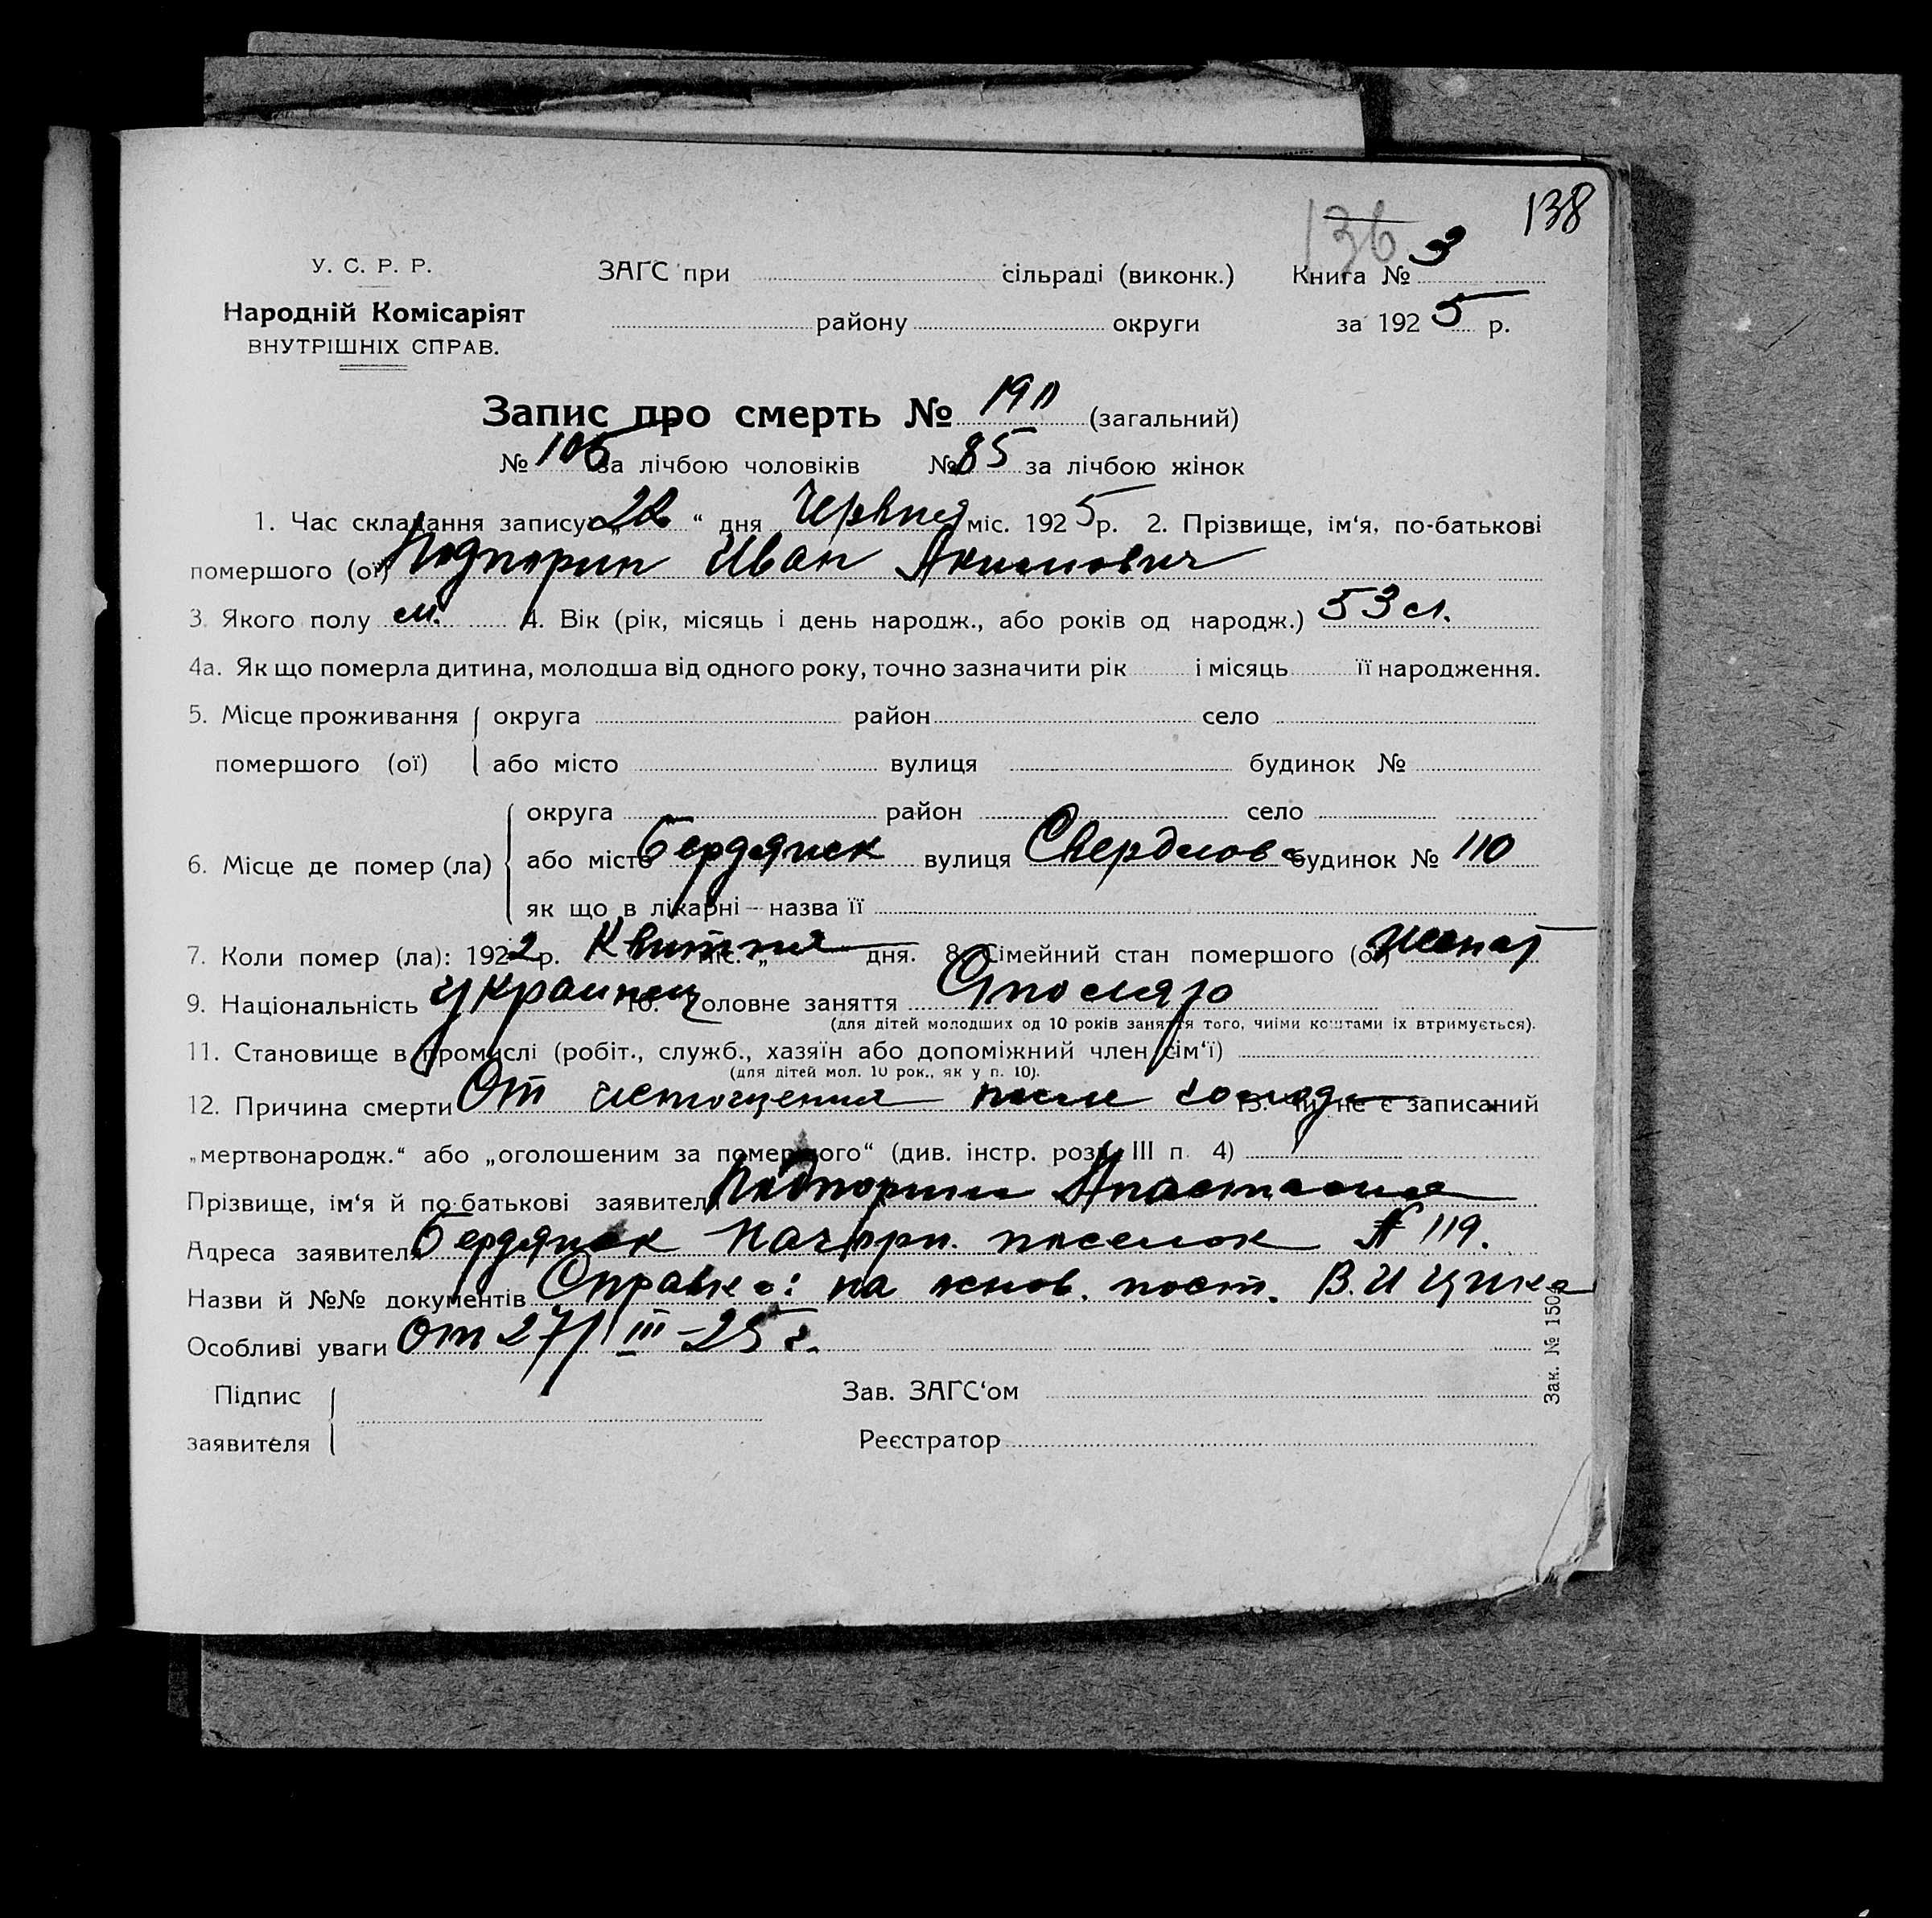 136 138
У. С. Р. Р. ЗАГС при сільраді (виконк.) Книга № 3
Народній Комісаріят району округи за 1925 р.
ВНУТРІШНІХ СПРАВ.
Запис про смерть № 190 (загальний)
№ 105 за лічбою чоловіків № 85 за лічбою жінок
1. Час складання запису „22“ дня Червня міс. 1925 р. 2. Прізвище, ім‘я, по-батькові
помершого (ої) Подпорин Иван Акимович
3. Якого полу м. 4. Вік (рік, місяць і день народж., або років од народж.) 53 л.
4а. Як що померла дитина, молодша від одного року, точно зазначити рік і місяць її народження.
5. Місце проживання округа район село
помершого (ої) або місто вулиця будинок №
округа район село
6. Місце де помер (ла) або місто Бердянск вулиця Свердлова будинок № 110
як що в лікарні – назва її
7. Коли помер (ла): 1922 р. Квітня міс. „ дня. 8. Сімейний стан помершого (ої) женат
9. Національність украинец 10. Головне заняття Столяр
(для дітей молодших од 10 років заняття того, чиїми коштами їх втримується).
11. Становище в промислі (робіт., служб., хазяїн або допоміжний член сім‘ї)
(для дітей мол. 10 рок., як у п. 10).
12. Причина смерти От истощения после голода 13. Чи не є записаний
„мертвонародж.“ або „оголошеним за помершого“ (див. інстр. розд. III п. 4)
Прізвище, ім‘я й по-батькові заявителя Подпорина Анастасия
Адреса заявителя Бердянск поселок № 119.
Назви й №№ документів Справка: на основ. пост. В.И Цика
Особливі уваги От 27/III–25 г.
Підпис Зав. ЗАГС‘ом
заявителя Реєстратор
Зак. № 1504